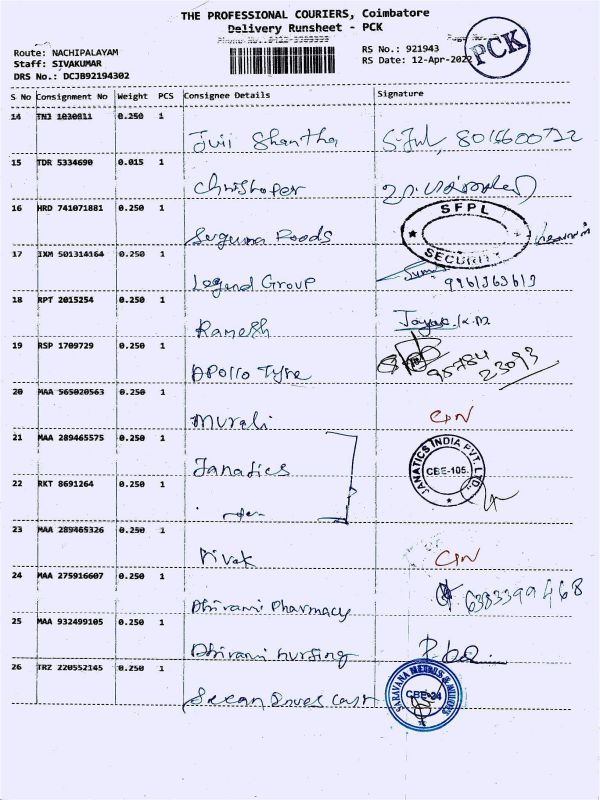 THE PROFESSIONAL COURIERS, Coimbatore
Delivery Runsheet - PCK
Route: NACHIPALAYAM
Staff: SIVAKUMAR
DRS No.: DCJB92194302
RS No.: 921943
RS Date: 12-Apr-2022
PCK
S No Consignment No Weight PCS Consignee Details Signature
14 TNJ 1030811 0.250 1
Shantha
15 TDR 5334690 0.015 1
Christoper
16 HRD 741071881 0.250 1
Suguna Foods
SFPL
SECURITY
17 IXM 501314164 0.250 1
Legend Group
18 RPT 2015254 0.250 1
Ramesh
19 RSP 1709729 0.250 1
Apollo Tyre 95784
23093
20 MAA 565020563 0.250 1
Murali
21 MAA 289465575 0.250 1
Janatics
JANATICS INDIA PVT. LTD.
CBE-105.
22 RKT 8691264 0.250 1
23 MAA 289465326 0.250 1
Vivek
24 MAA 275916607 0.250 1
Dhivami Pharmacy 6383399468
25 MAA 932499105 0.250 1
Dhivami nursing
26 TRZ 220552145 0.250 1
SARAVANA METALS &
CBE-24